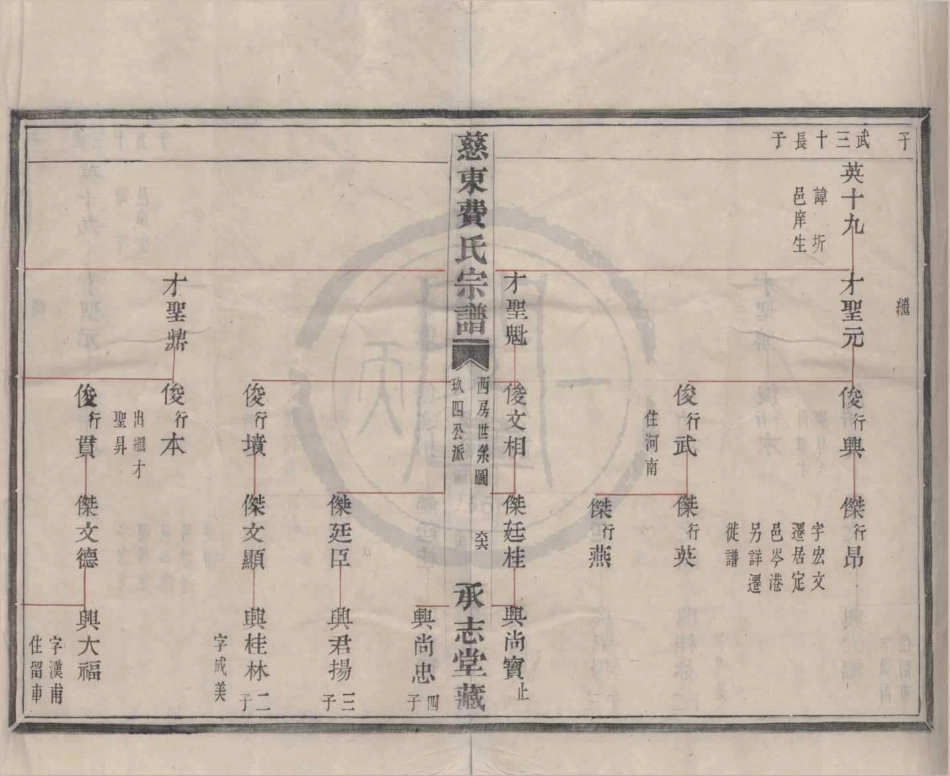 子
繼
武三十長子
英十九
諱圻
邑庠生
才聖元
俊行興
傑行昂
字宏文
遷居定
邑岑港
另詳遷
徙譜
俊行武
住河南
傑行英
傑行燕
才聖魁
俊文相
傑廷桂
興尚寶止
慈東費氏宗譜
西房世系圖
玖四公派
承志堂藏
興尚忠四子
傑廷臣
興君揚三子
俊行墳
傑文顯
興桂林二子
字成美
才聖鼎
俊行本
出繼才
聖昇
俊行貫
傑文德
興大福
字漢甫
住留車